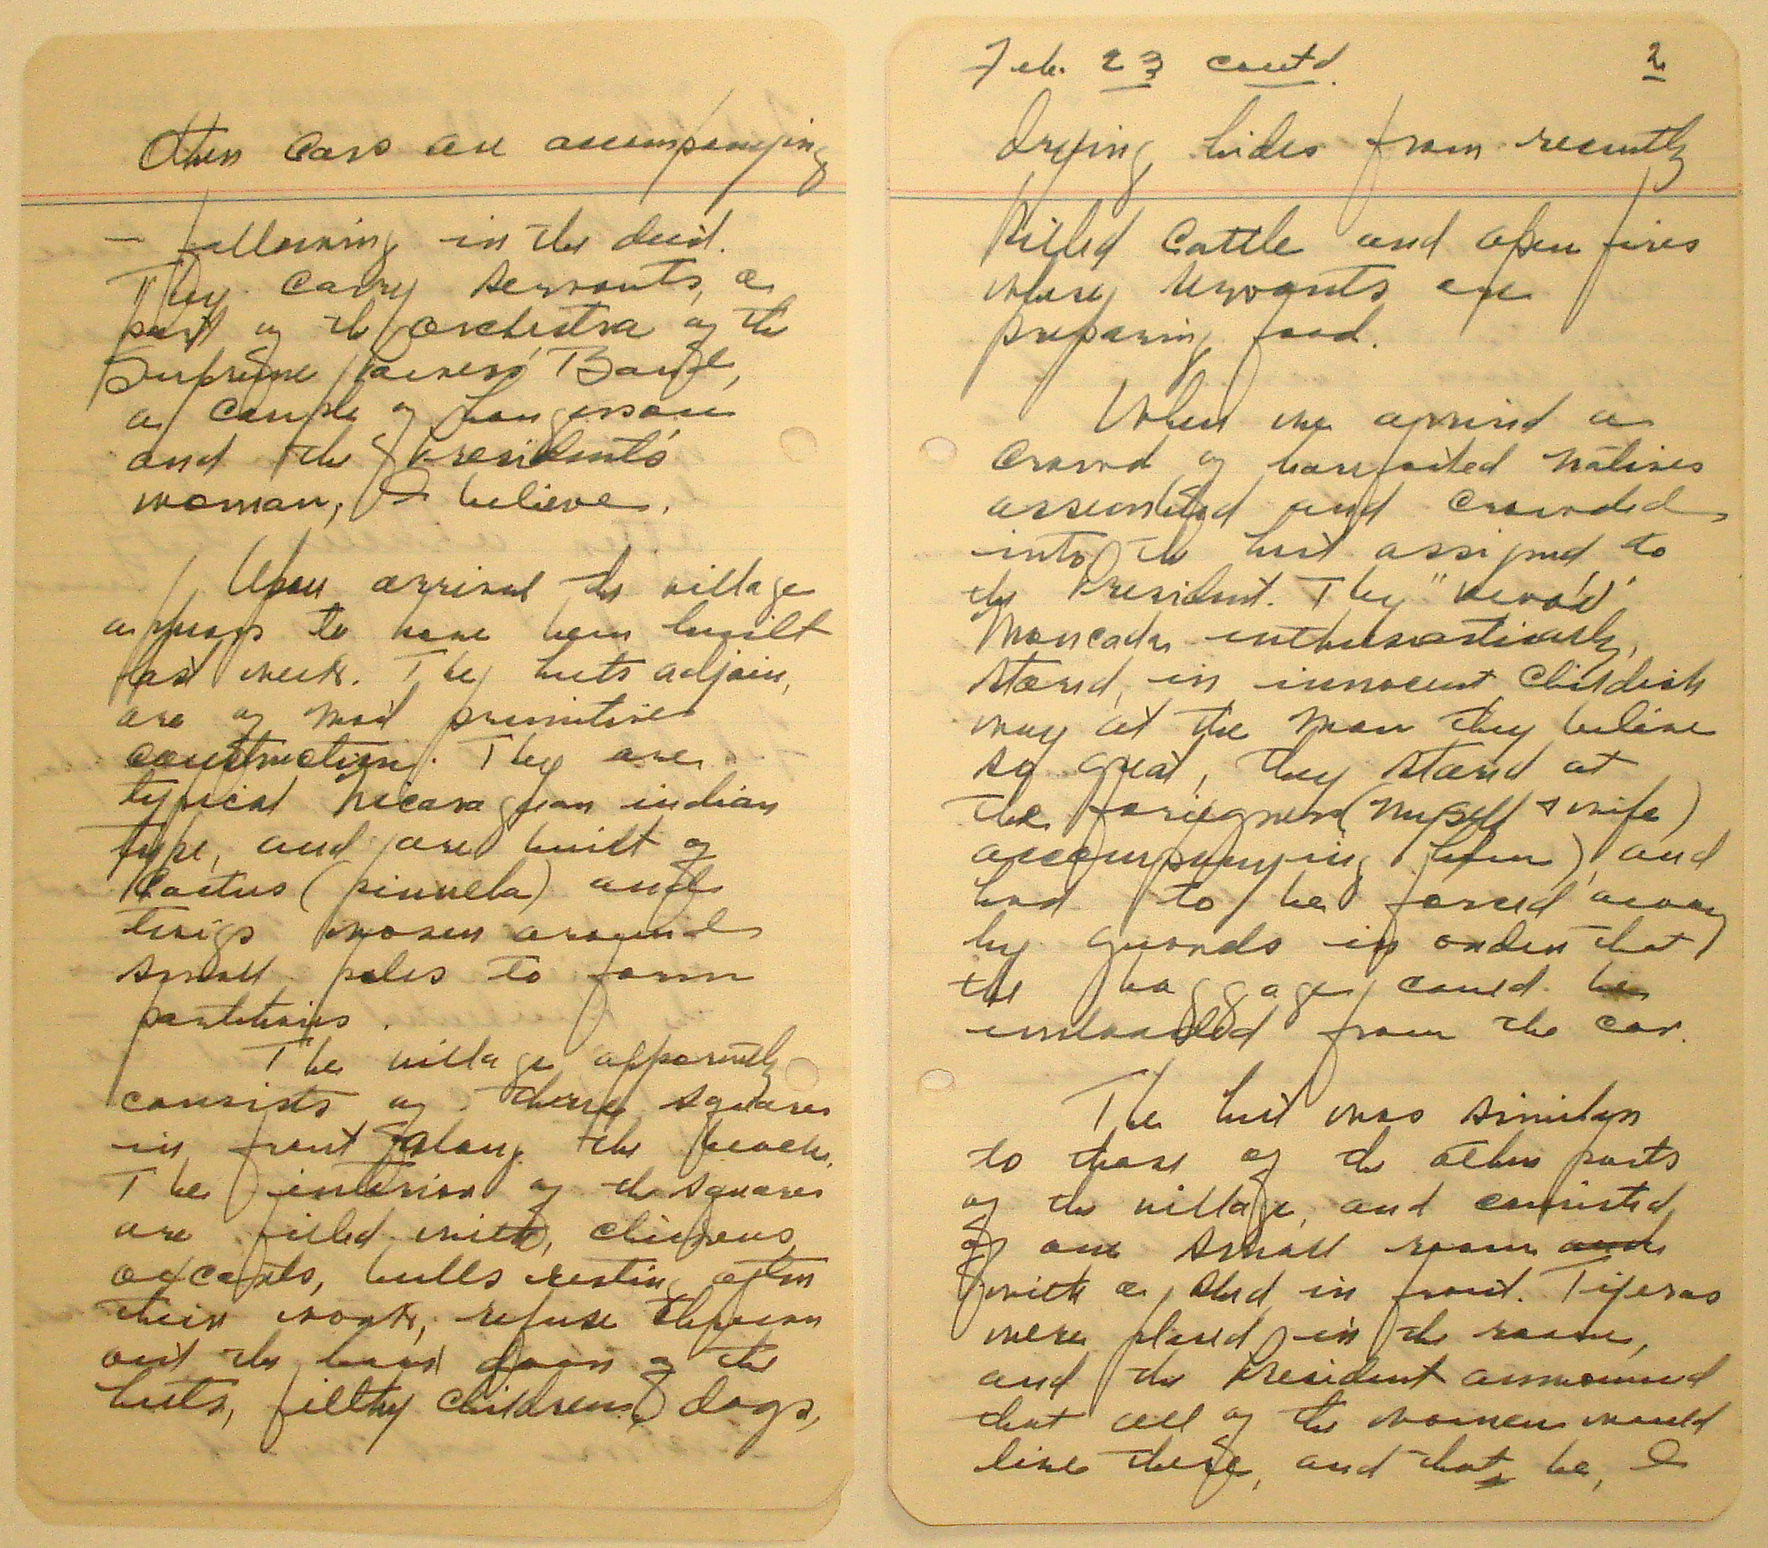 Other cars are accompanying
– following in the dust.
They carry servants, a
part of the orchestra of the
Supreme Powers' Band,
a couple of hangerson
and the President's
woman, I believe.
Upon arrival the village
appears to have been built
last week. The huts adjoin,
are of most primitive
construction. They are
typical Nicaraguan indian
type, and are built of
Cactus (pinuela) and
twigs woven around
small poles to form
partitions.
The village apparently
consists of three squares
in front along the beach.
The interior of the squares
are filled with, chickens,
oxcarts, bulls resting after
their work, refuse thrown
out the back doors of the
huts, filthy children, dogs,
Feb. 23 contd. 2
drying hides from recently
killed cattle and open fires
where servants are
preparing food.
When we arrived a
crowd of barefooted natives
assembled and crowded
into the hut assigned to
the President. They "viva'd"
Moncada enthusiastically,
stared, in innocent childish
way at the man they believe
so great, they stared at
the foreigners (myself & wife)
accompanying him), and
had to be forced away
by guards in order that
the baggage could be
unloaded from the car.
The hut was similar
to those of the other parts
of the village, and consisted
of one small room and
with a shed in front. Tijeras
were placed in the room,
and the President announced
that all of the women would
live there, and that he, I